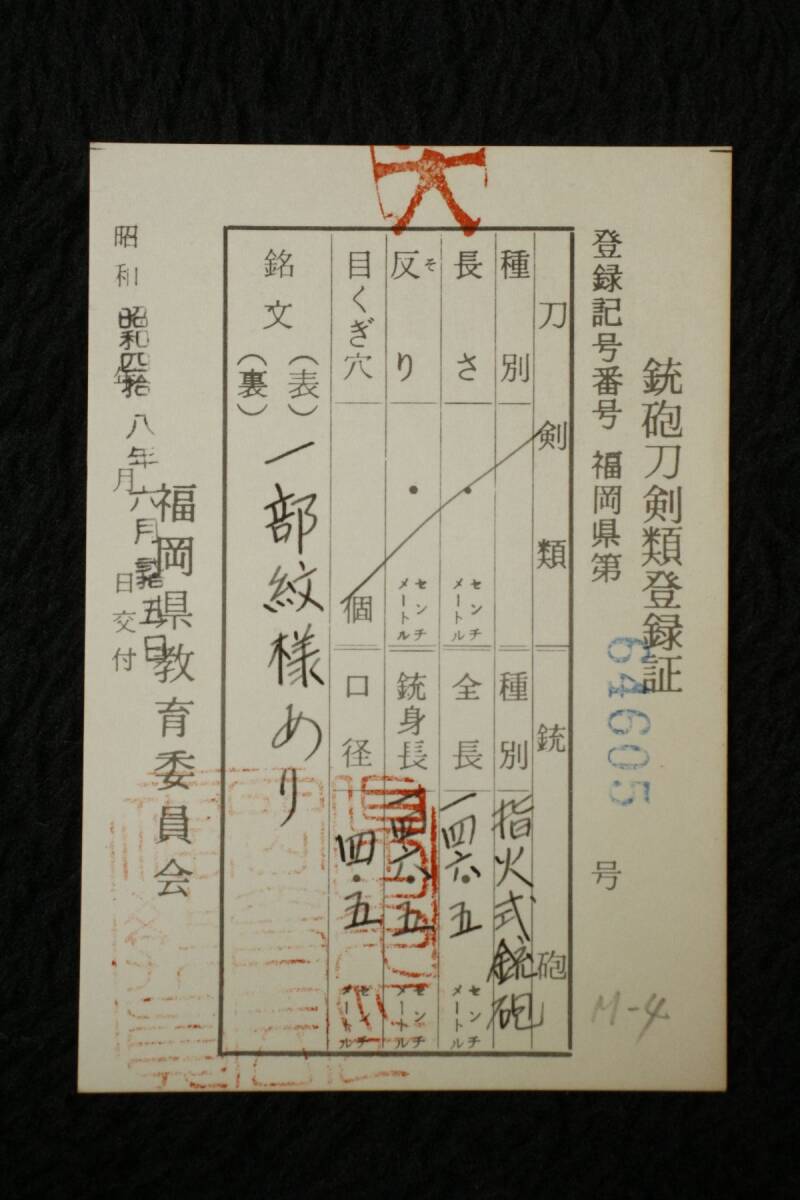 銃砲刀剣類登録証
登録記号番号 福岡県第 64605 号
刀剣類 銃砲
種別 種別 指火式銃砲
長さ ・ センチメートル 全長 一四六・五 センチメートル
反り そ ・ センチメートル 銃身長 一四六・五 センチメートル
目くぎ穴 個 口径 四・五 センチメートル
銘文 (表) 一部紋様あり
(裏)
福岡県教育委員会
昭和 年 月 日交付
昭和四拾八年六月 五日
大
M-4